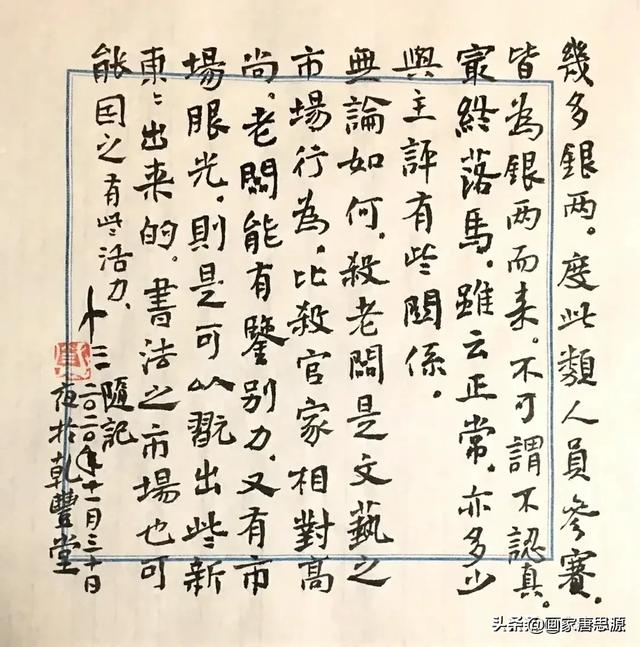 幾多銀两。度此類人員參賽.
皆為銀两而来。不可謂不認真。
最終落馬。雖云正常。亦多少
與主評有些關係。
無論如何。殺老闆是文藝之
市場行為。比殺官家相對高
尚。老闆能有鑒别力。又有市
場眼光。則是可以翫出些新
東〻出来的。書法之市場也可
能因之有些活力。
十三隨記
二〇二〇年十一月三十日
夜於乾豐堂
头条 @画家唐思源